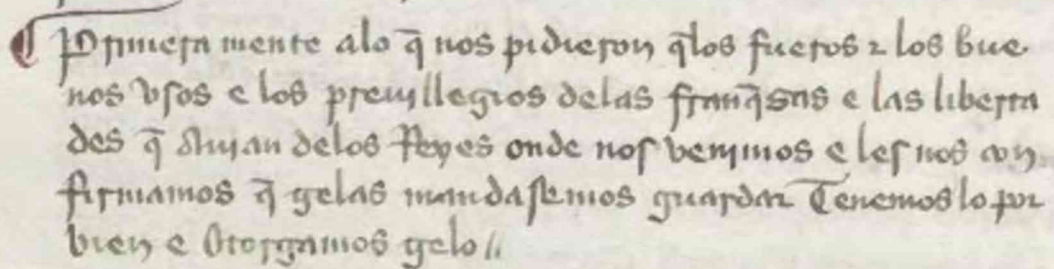 ¶ Primera mente alo q̄ nos pidieron q̄los fueros ⁊ los bue
nos vsos e los preuillegios delas franq̄sas e las liberta
des q̄ auian delos Reyes onde nos venimos e les nos con
firmamos q̄ gelas mandasemos guardar Tenemos lo por
bien e otorgamos gelo //